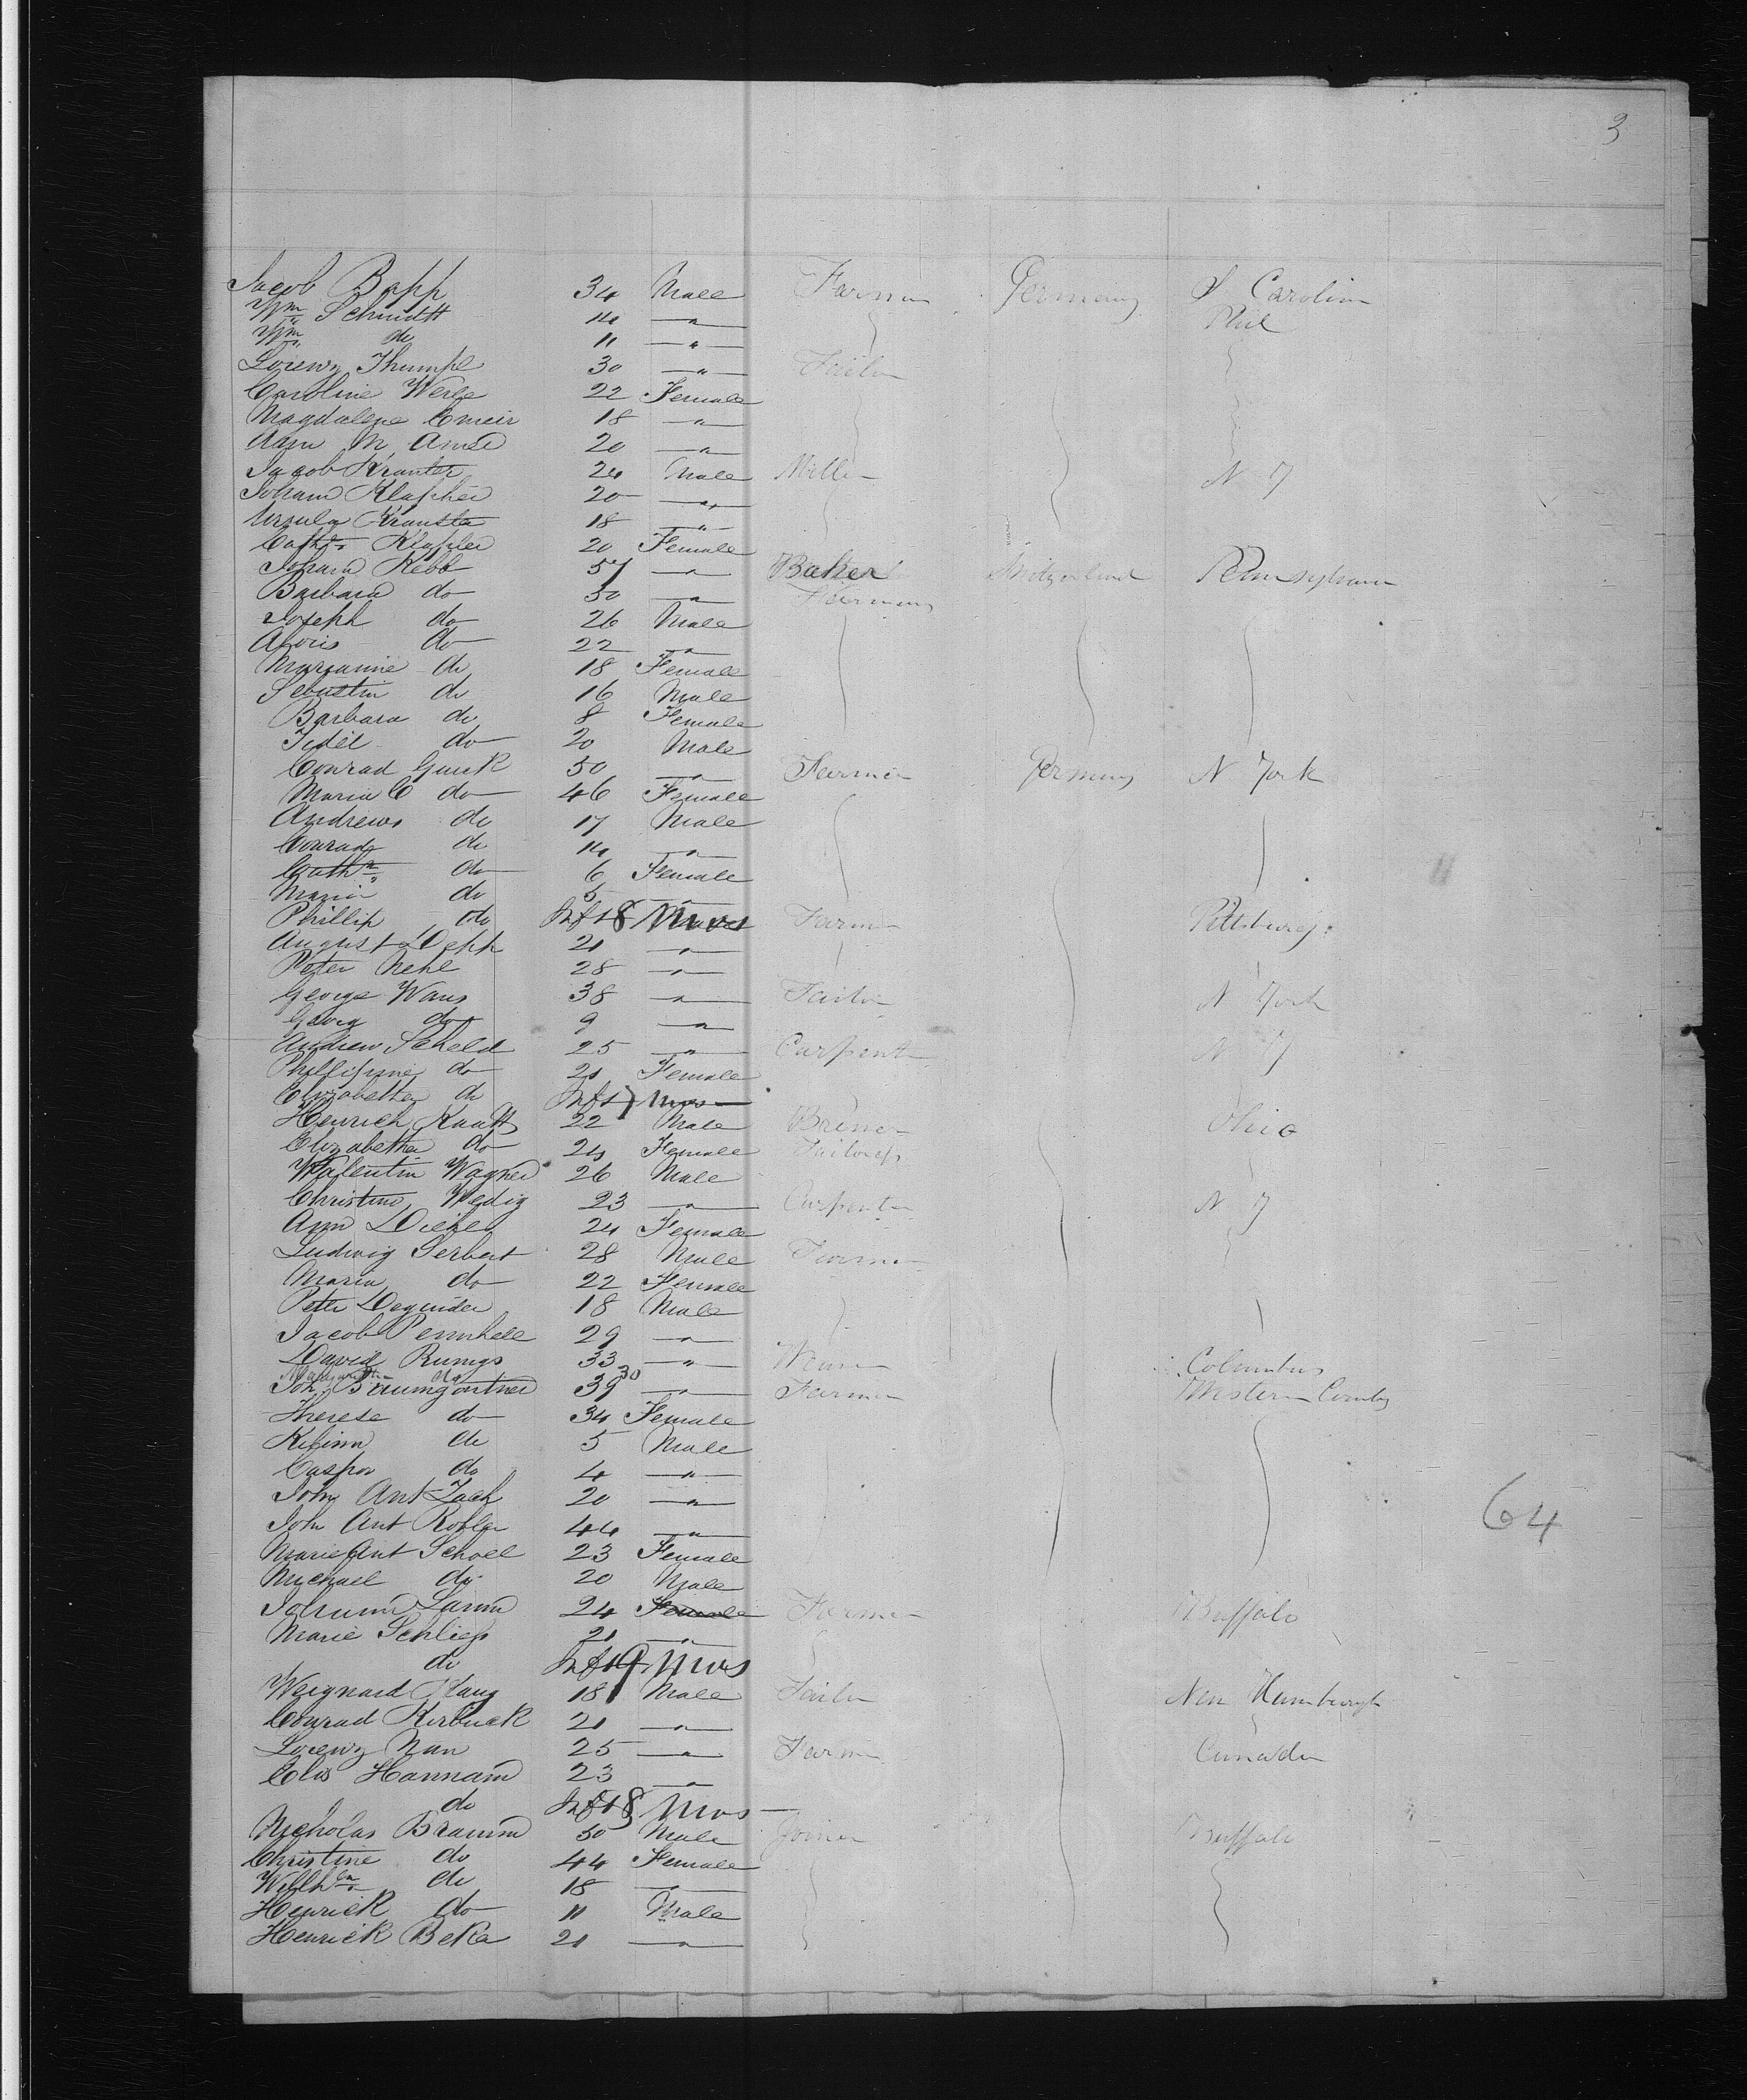 3
Jacob Bapp 34 Male Farmer Germany S Carolina
Wm Schmidt 14 — " — Phil
Wm do 11 — " —
Lorenz Thumpel 30 — " — Tailor
Caroline Werle 22 Female
Magdalene 18 — " —
M 20 — " —
Jacob Kranter 24 Male Miller N Y
Johann 20 — " —
Ursula 18 — " —
20 Female
Johann Kebb 57 — " — Baker Switzerland Pennsylvania
Barbara do 50 — " —
Joseph do 26 Male
Alois do 22 — " —
Marianne do 18 Female
Sebastin do 16 Male
Barbara do 8 Female
Fidel do 20 Male
Conrad Gunk 50 — " — Farmer Germany N York
Maria C do 46 Female
Andrews do 17 Male
Conrad do 14 — " —
Cathn do 6 Female
Maria do 5 — " —
Phillip do Inft 8 Mos Farmer Pittsburg
August Depp 21 — " —
Peter Nehl 28 — " —
George Wans 38 — " — Tailor N York
Georg do 9 — " —
Andrew Scheld 25 — " — Carpenter N Y
Phillipine do 21 Female
Elizabetha do Inft 7 mos —
Henrich Knatts 22 Male Brewer Ohio
Elizabetha do 24 Female Tailoress
Valentin Wagner 26 Male
Christine Wedig 23 — " — Carpenter N Y
Ann Diehl 24 Female
Ludwig Serbert 28 Male Farmer
Maria do 22 Female
Peter 18 Male
Jacob 29 — " —
David Rumgs 33 — " — Columbus
do 30
Joh. Baumgartner 39 — Farmer Western County
Therese do 34 Female
Kilian do 5 Male
Caspar do 4 — " —
John Ant Zach 20 — " —
John Ant Kohler 44 — " — 64
Marie Ant Scholl 23 Female
Michael do 20 Male
Johann Lamm 24 Female Farmer Buffalo
Marie Schliep 21 — " —
do Inft 9 Mos
Haug 18 Male Tailor New Hamburgh
Conrad Kirbuck 21 — " —
Lorenz Nau 25 — " — Farmer Canada
Hannam 23 — " —
do Inft 8 Mos —
Nicholas Bramm 50 Male Joiner Buffalo
Christine do 44 Female
Willhna do 18 — " —
Henrick do 11 Male
Henrick Beka 21 — " —